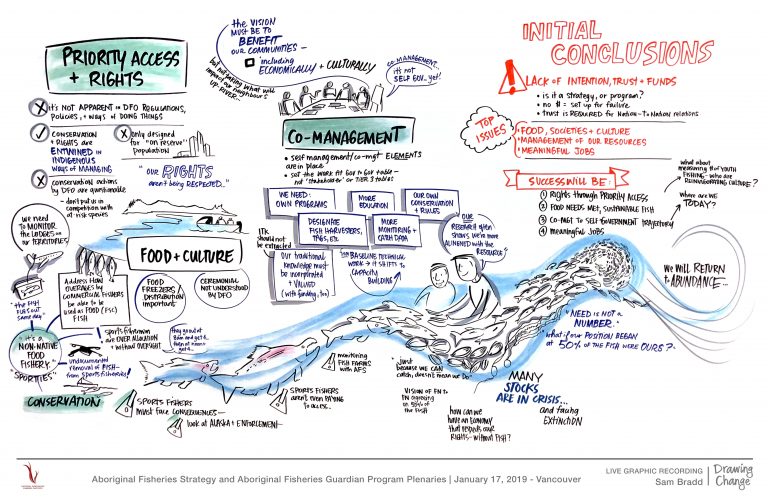 PRIORITY ACCESS
+ RIGHTS
it's NOT APPARENT in DFO REGULATIONS,
POLICIES, + WAYS OF DOING THINGS
CONSERVATION
+ RIGHTS are
ENTWINED in
INDIGENOUS
WAYS of MANAGING
only designed
for "on reserve"
population
conservation actions
by DFO are questionable
- don't put us in
competition with
at-risk species
"OUR RIGHTS
aren't being RESPECTED."
the VISION
MUST BE TO
BENEFIT
OUR COMMUNITIES -
including
ECONOMICALLY + CULTURALLY
but not saying what will
impact our neighbours
UP RIVER.
CO-MANAGEMENT...
it's not
SELF GOV... yet!
CO-MANAGEMENT
• self management/co-mgt ELEMENTS
are in place
- set the work GOV to GOV table -
not "stakeholder" or TIER 3 tables
WE NEED:
OWN PROGRAMS
MORE
EDUCATION
OUR OWN
CONSERVATION
+ RULES
DESIGNATE
FISH HARVESTERS,
TAGS, ETC
MORE
MONITORING +
CATCH DATA
OUR
RESEARCH often
shows we're more
ALIGNED with the
RESOURCE"
ITK
should not
be extracted
Our traditional
knowledge must
be incorporated
+ VALUED
(with funding, too)
BASELINE TECHNICAL
WORK → it SHIFTS to
CAPACITY
BUILDING
INITIAL
CONCLUSIONS
LACK OF INTENTION, TRUST + FUNDS
• is it a strategy, or program?
• no $ = set up for failure
• trust is REQUIRED for Nation-to Nation relations
TOP
ISSUES
• FOOD, SOCIETIES + CULTURE
• MANAGEMENT OF OUR RESOURCES
• MEANINGFUL JOBS
SUCCESS WILL BE:
1 Rights through PRIORITY ACCESS
2 FOOD NEEDS MET, SUSTAINABLE FISH
3 CO-MGT TO SELF GOVERNMENT TRAJECTORY
4 meaningful JOBS
what about
measuring # of YOUTH
FISHING - who are
REINVIGORATING CULTURE?
where are WE
TODAY?
We WILL RETURN
to ABUNDANCE...
we need
to MONITOR
the LODGES on our
TERRITORIES
FOOD + CULTURE
"the FISH
FLIES OUT
same day"
Address HOW
OVERAGES in
COMMERCIAL FISHERS
be able to be
used as FOOD (FSC)
FISH
FOOD
FREEZERS /
DISTRIBUTION
important
CEREMONIAL
NOT UNDERSTOOD
BY DFO
"it's a
NON-NATIVE
FOOD
FISHERY"
"SPORTIES"
sports fishermen
are OVER ALLOCATION
+ WITHOUT OVERSIGHT
undocumented
removal of FISH -
from sports fisheries!
CONSERVATION
SPORTS FISHERS
must face CONSEQUENCES -
look at ALASKA + ENFORCEMENT -
SPORTS FISHERS
aren't even PAYING
to access..
monitoring
FSC FISHERS
with AFS
"just
because WE CAN
catch, doesn't mean we DO"
VISION OF FN to
FN agreeing
on 55% of
the FISH
how can we
have an ECONOMY
that respects our
RIGHTS - without FISH?
MANY
STOCKS
ARE IN CRISIS...
and facing
EXTINCTION
"NEED IS NOT A
NUMBER.."
what if our POSITION BEGAN
at 50% OF THE FISH WERE OURS?
Aboriginal Fisheries Strategy and Aboriginal Fisheries Guardian Program Plenaries | January 17, 2019 - Vancouver
LIVE GRAPHIC RECORDING
Sam Bradd
Drawing
Change